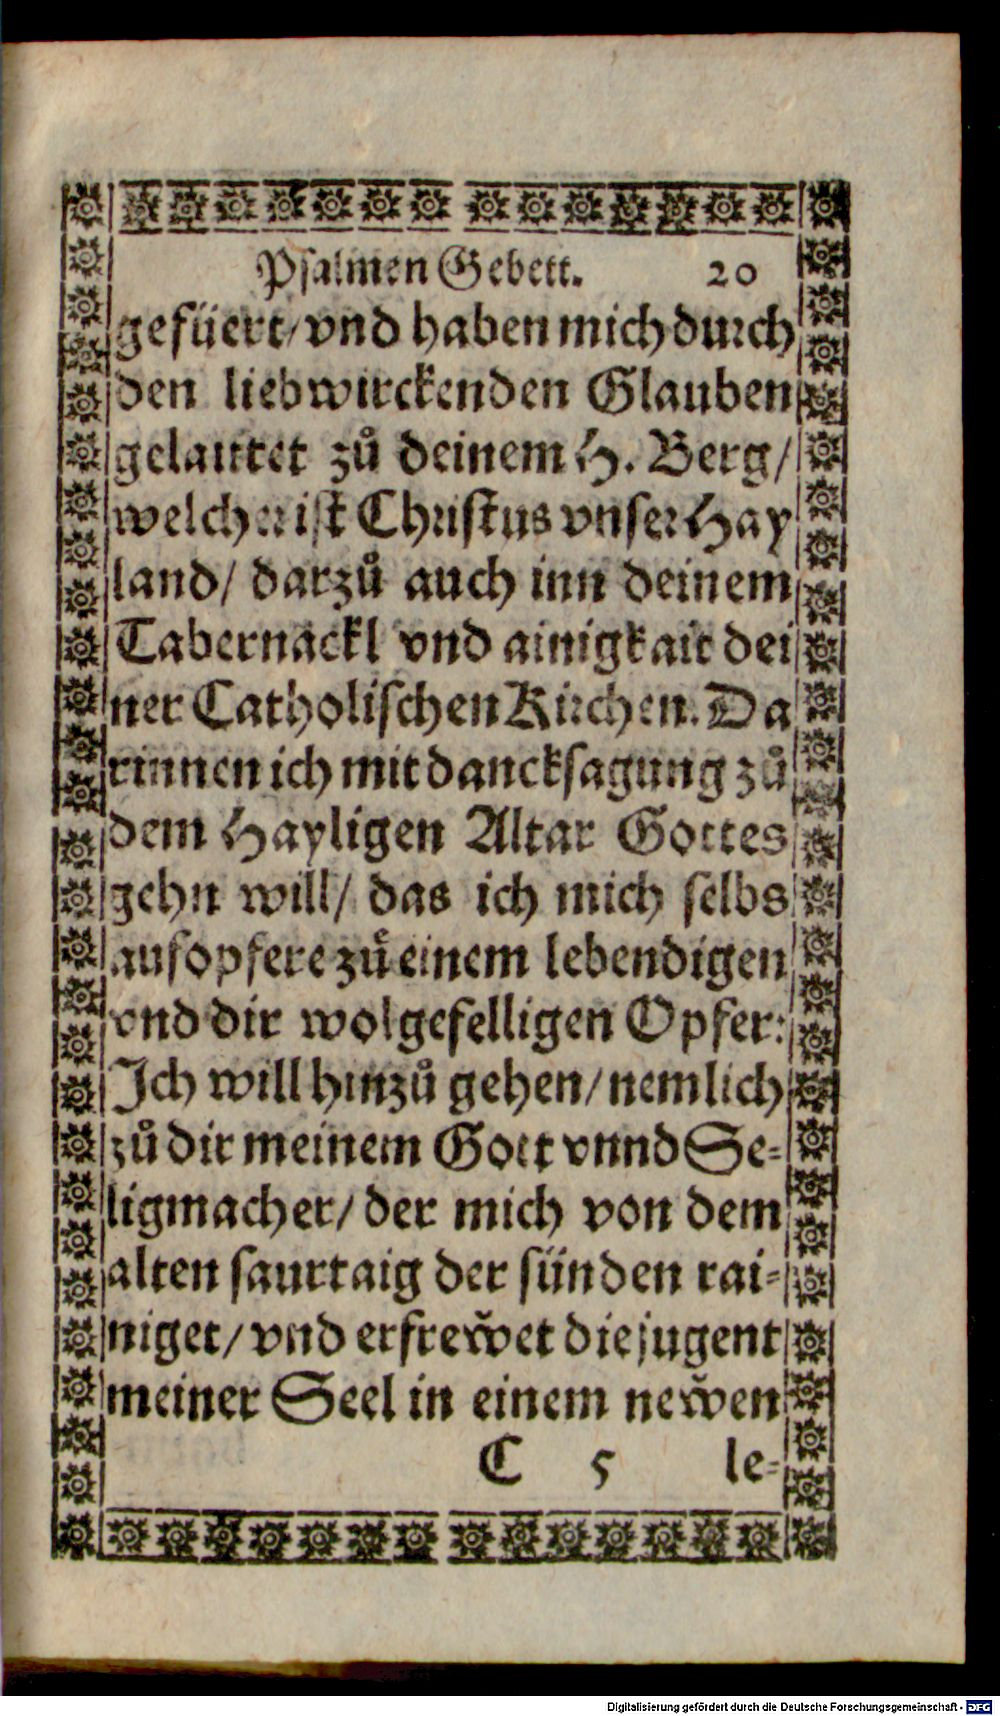 Psalmen Gebett. 20
gefüert/ vnd haben mich durch
den liebwirckenden Glauben
gelaitet zů deinem H. Berg/
welcher ist Christus vnser Hay
land/ darzů auch inn deinem
Tabernackl vnd ainigkait dei
ner Catholischen Kirchen. Da
rinnen ich mit dancksagung zů
dem Hayligen Altar Gottes
gehn will/ das ich mich selbs
aufopfere zů einem lebendigen
vnd dir wolgefelligen Opfer:
Ich will hinzů gehen/ nemlich
zů dir meinem Gott vnnd Se-
ligmacher/ der mich von dem
alten saurtaig der sünden rai-
niget/ vnd erfrewet die jugent
meiner Seel in einem newen
C 5 le-
Digitalisierung gefördert durch die Deutsche Forschungsgemeinschaft - DFG